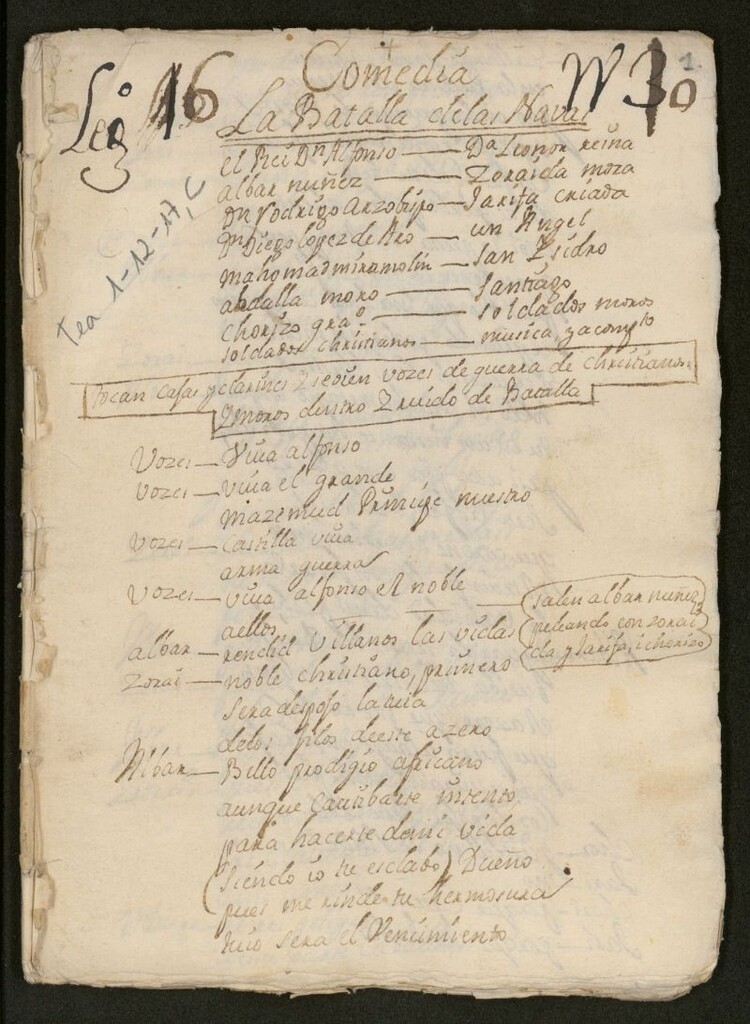 Comedia
Lego 16
N 30
1
La Batalla de las Navas
el Rei Dn Alfonso — Da Leonor reina
albar nuñez — Zoraida mora
Dn Rodrigo Arzobispo — Jarifa criada
Dn Diego lopez de Aro — un Angel
mahomad miramolin — San Isidro
abdalla moro — Santiago
chorizo grao — soldados moros
soldados christianos — musica, y acompto
Tea 1-12-17, C
tocan cajas y clarines Z se dizen vozes de guerra de christianos
Z moros dentro Z ruido de Batalla
Vozes — Viva alfonso
vozes — viva el grande
mazemud Principe nuestro
vozes — Castilla viva
arma guerra
vozes — viva alfonso el noble
aellos
salen albar nuñez
peleando con zorai
da y Jarifa, i chorizo
albar — rendid villanos las vidas
Zorai — noble christiano, primero
sera despojo la mia
delos filos deeste azero
Albar — Bello prodigio africano
aunque cautibarte intento,
para hacerte de mi vida
(siendo io tu esclabo) Dueño
pues me rinde tu hermosura
tuio sera el Vencimiento